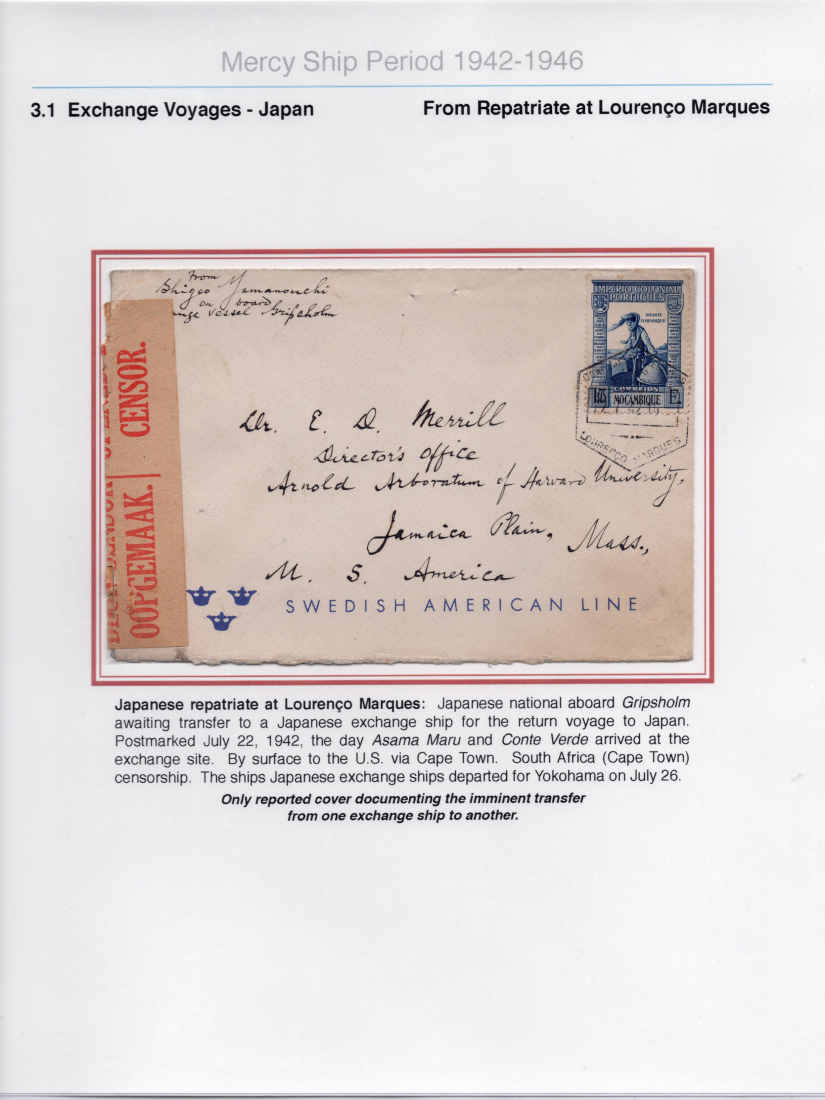 Mercy Ship Period 1942-1946
3.1 Exchange Voyages - Japan
From Repatriate at Lourenço Marques
From
Shigeo Yamanouchi
on board
nge vessel Gripsholm
OPENED
CENSOR.
OOPGEMAAK.
IMPÉRIO COLONIAL
PORTUGUÊS
INFANTE
D.HENRIQUE
CORREIOS
MOÇAMBIQUE
LOURENÇO MARQUES
Dr. E. D. Merrill
Director's Office
Arnold Arboratum of Harvard University,
Jamaica Plain, Mass.,
U. S. America
SWEDISH AMERICAN LINE
Japanese repatriate at Lourenço Marques: Japanese national aboard Gripsholm
awaiting transfer to a Japanese exchange ship for the return voyage to Japan.
Postmarked July 22, 1942, the day Asama Maru and Conte Verde arrived at the
exchange site. By surface to the U.S. via Cape Town. South Africa (Cape Town)
censorship. The ships Japanese exchange ships departed for Yokohama on July 26.
Only reported cover documenting the imminent transfer
from one exchange ship to another.